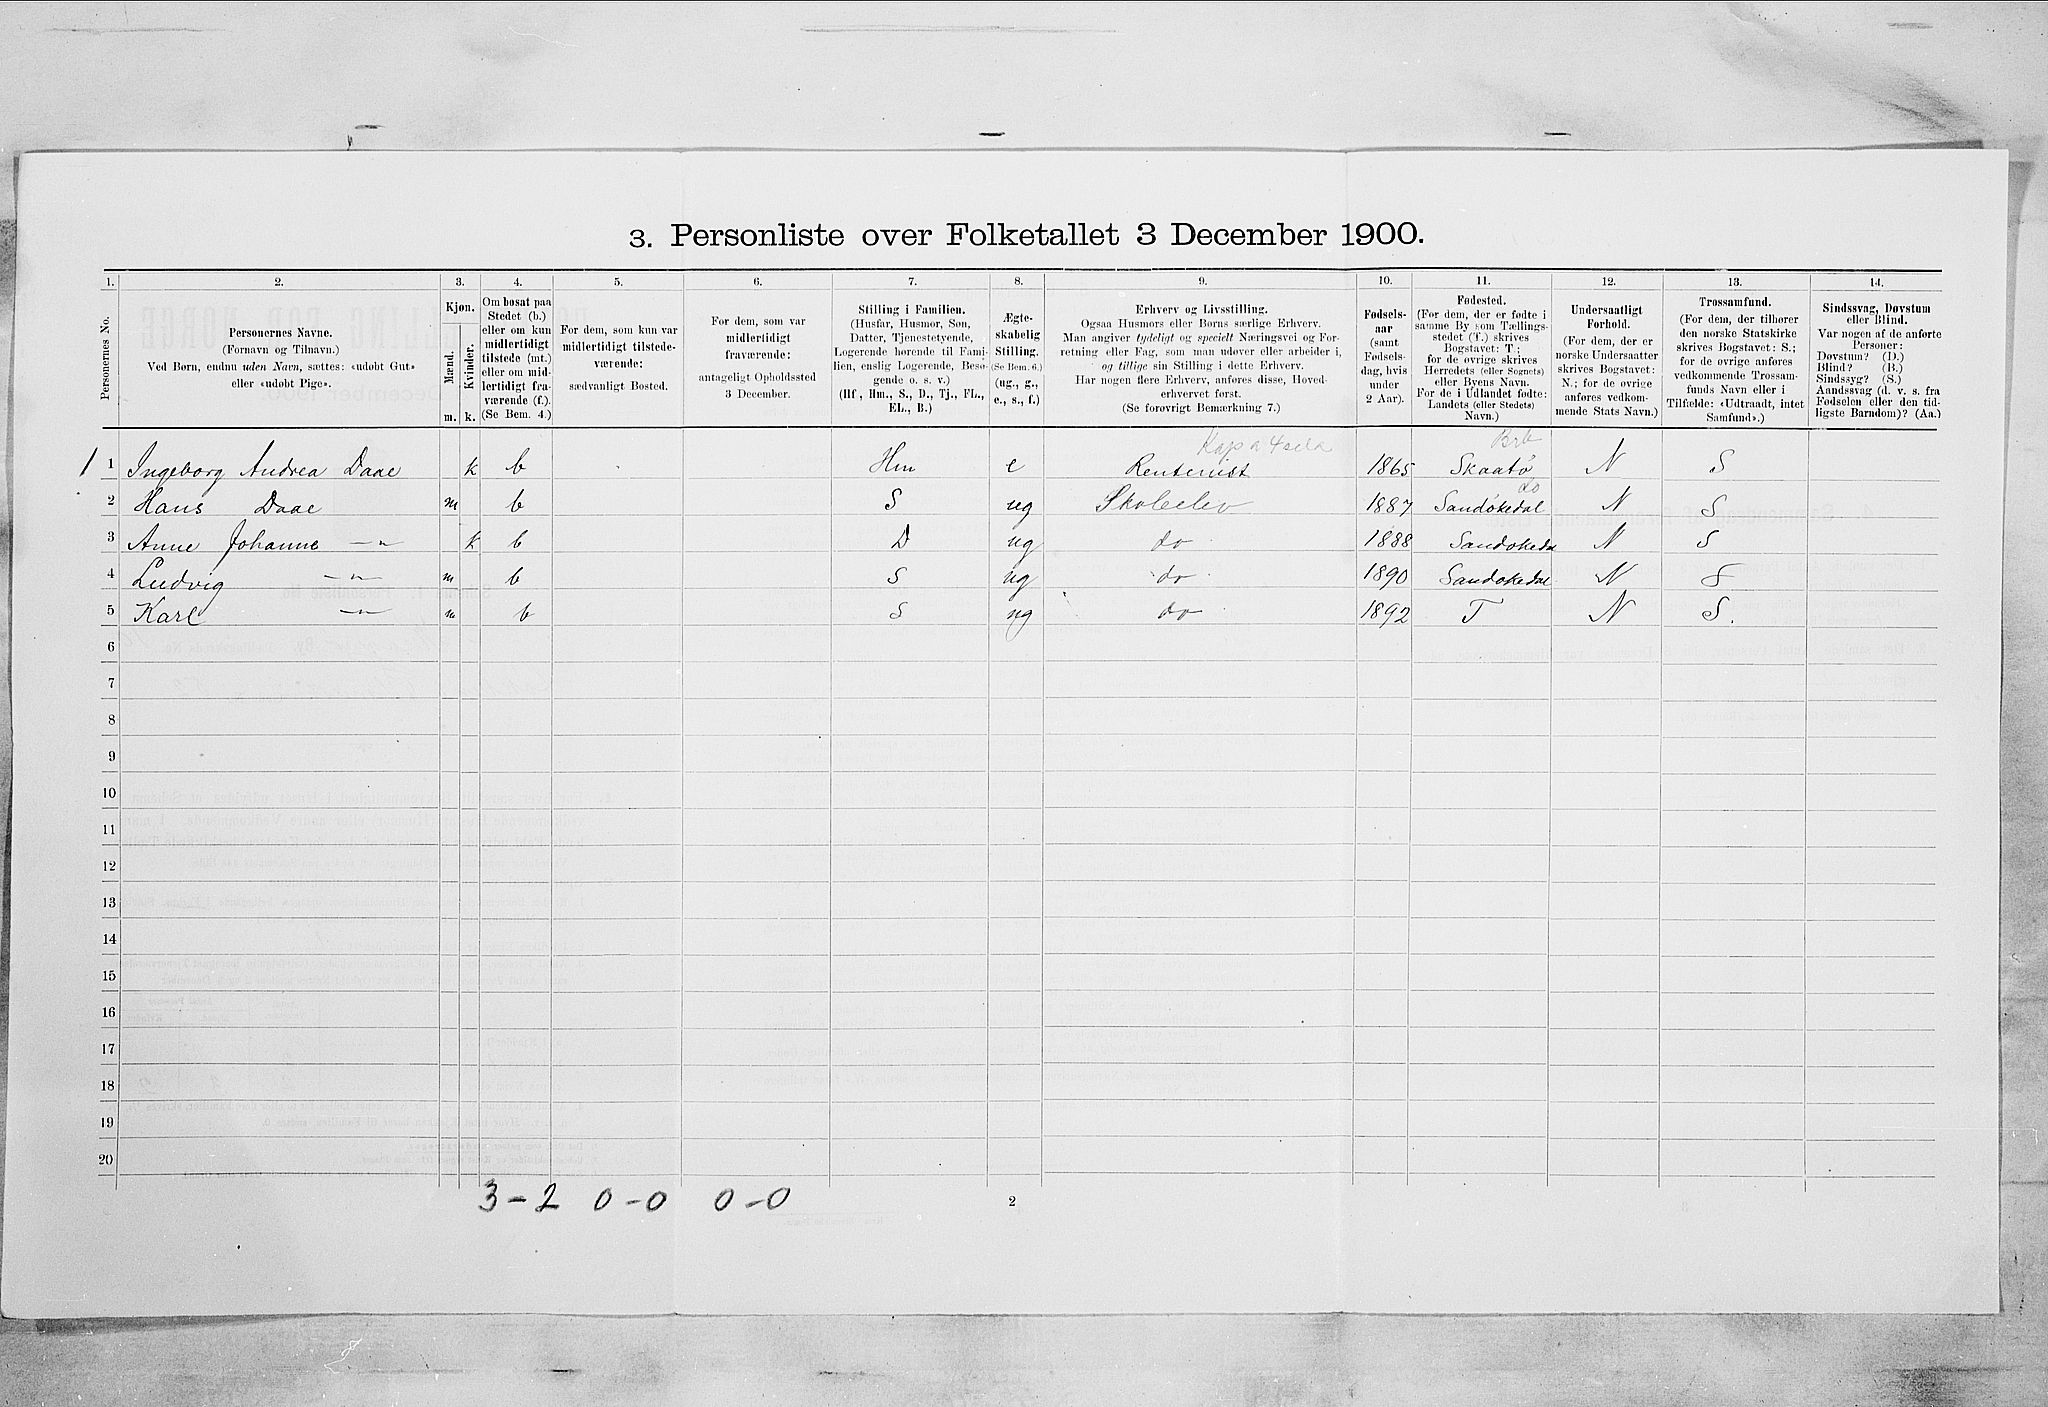 3. Personliste over Folketallet 3 December 1900.
1. 2. 3. 4. 5. 6. 7. 8. 9. 10. 11. 12. 13. 14.
Personernes No.
Personernes Navne.
(Fornavn og Tilnavn.)
Ved Børn, endnu uden Navn, sættes: «udøbt Gut»
eller «udøbt Pige».
Kjøn.
Mænd.
Kvinder.
m. k.
Om bosat paa
Stedet (b.)
eller om kun
midlertidigt
tilstede (mt.)
eller om mid-
lertidigt fra-
værende (f.).
(Se Bem. 4.)
For dem, som kun var
midlertidigt tilstede-
værende:
sædvanligt Bosted.
For dem, som var
midlertidigt
fraværende:
antageligt Opholdssted
3 December.
Stilling i Familien.
(Husfar, Husmor, Søn,
Datter, Tjenestetyende,
Logerende hørende til Fami-
lien, enslig Logerende, Besø-
gende o. s. v.)
(Hf., Hm., S., D., Tj., FL.,
EL., B.)
Ægte-
skabelig
Stilling.
(Se Bem. 6.)
(ug., g.,
e., s., f.)
Erhverv og Livsstilling.
Ogsaa Husmors eller Børns særlige Erhverv.
Man angiver tydeligt og specielt Næringsvei og For-
retning eller Fag, som man udøver eller arbeider i,
og tillige sin Stilling i dette Erhverv.
Har nogen flere Erhverv, anføres disse, Hoved-
erhvervet først.
(Se forøvrigt Bemærkning 7.)
Fødsels-
aar
(samt
Fødsels-
dag, hvis
under
2 Aar).
Fødested.
(For dem, der er fødte i
samme By som Tællings-
stedet (f.) skrives
Bogstavet: T;
for de øvrige skrives
Herredets (eller Sognets)
eller Byens Navn.
For de i Udlandet fødte:
Landets (eller Stedets)
Navn.)
Undersaatligt
Forhold.
(For dem, der er
norske Undersaatter
skrives Bogstavet:
N.; for de øvrige
anføres vedkom-
mende Stats Navn.)
Trossamfund.
(For dem, der tilhører
den norske Statskirke
skrives Bogstavet: S.;
for de øvrige anføres
vedkommende Trossam-
funds Navn eller i
Tilfælde: «Udtraadt, intet
Samfund».)
Sindssvag, Døvstum
eller Blind.
Var nogen af de anførte
Personer:
Døvstum? (D.)
Blind? (B.)
Sindssyg? (S.)
Aandssvag (d. v. s. fra
Fødselen eller den tid-
ligste Barndom)? (Aa.)
1 1 Ingeborg Andrea Daae k b Hm e Rentenist 1865 Skaatø N S
2 Hans Daae m b S ug Skoleelev 1887 Sandøkedal N S
3 Anne Johanne —"— k b D ug do 1888 Sandøkedal N S
4 Ludvig —"— m b S ug do 1890 Sandøkedal N S
5 Karl —"— m b S ug do 1892 T N S.
6
7
8
9
10
11
12
13
14
15
16
17
18
19
20
3-2 0-0 0-0
2